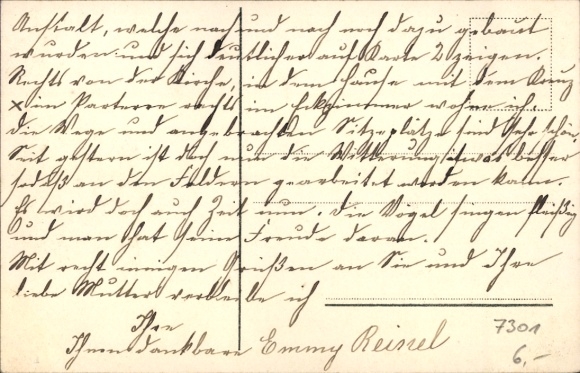 Anstalt, welche nach und nach noch dazu gebaut
wurden und sich deutlicher auf Karte 2 zeigen.
Rechts von der Kirche, in dem Hause mit dem Kreuz
x im Parterre rechts im Eckzimmer wohne ich.
Die Wege und angebrachten Sitzplätze sind sehr schön.
Seit gestern ist doch nun die Witterung etwas besser
sodaß an den Feldern gearbeitet werden kann.
Es wird doch auch Zeit nun. Die Vögel singen fleißig
und man hat seine Freude daran.
Mit recht innigen Grüßen an Sie und Ihre
liebe Mutter verbleibe ich
Ihre
Ihnen dankbare Emmy Reissel
7301
6,-